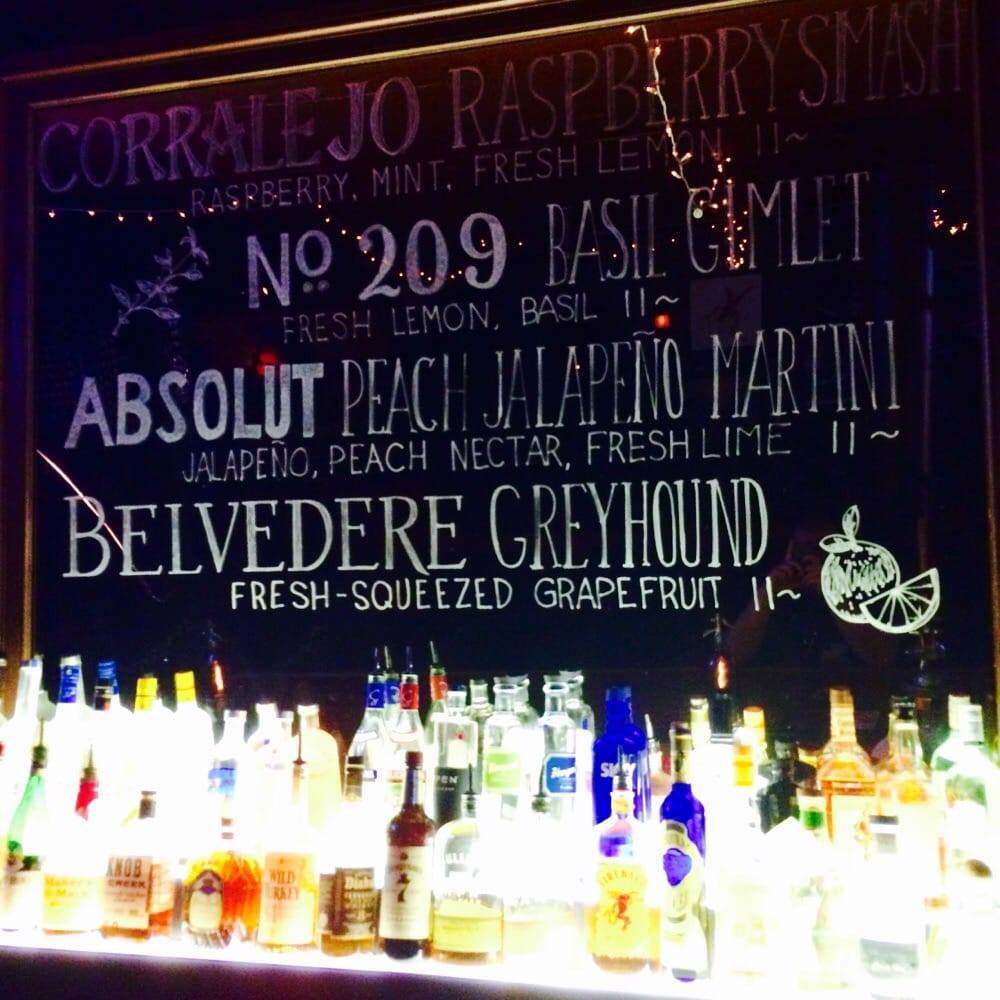 CORRALEJO RASPBERRY SMASH
RASPBERRY, MINT, FRESH LEMON 11~
No 209 BASIL GIMLET
FRESH LEMON, BASIL 11~
ABSOLUT PEACH JALAPEÑO MARTINI
JALAPEÑO, PEACH NECTAR, FRESH LIME 11~
BELVEDERE GREYHOUND
FRESH-SQUEEZED GRAPEFRUIT 11~
SKYY
KNOB
CREEK
WILD
TURKEY
7
FIREBALL